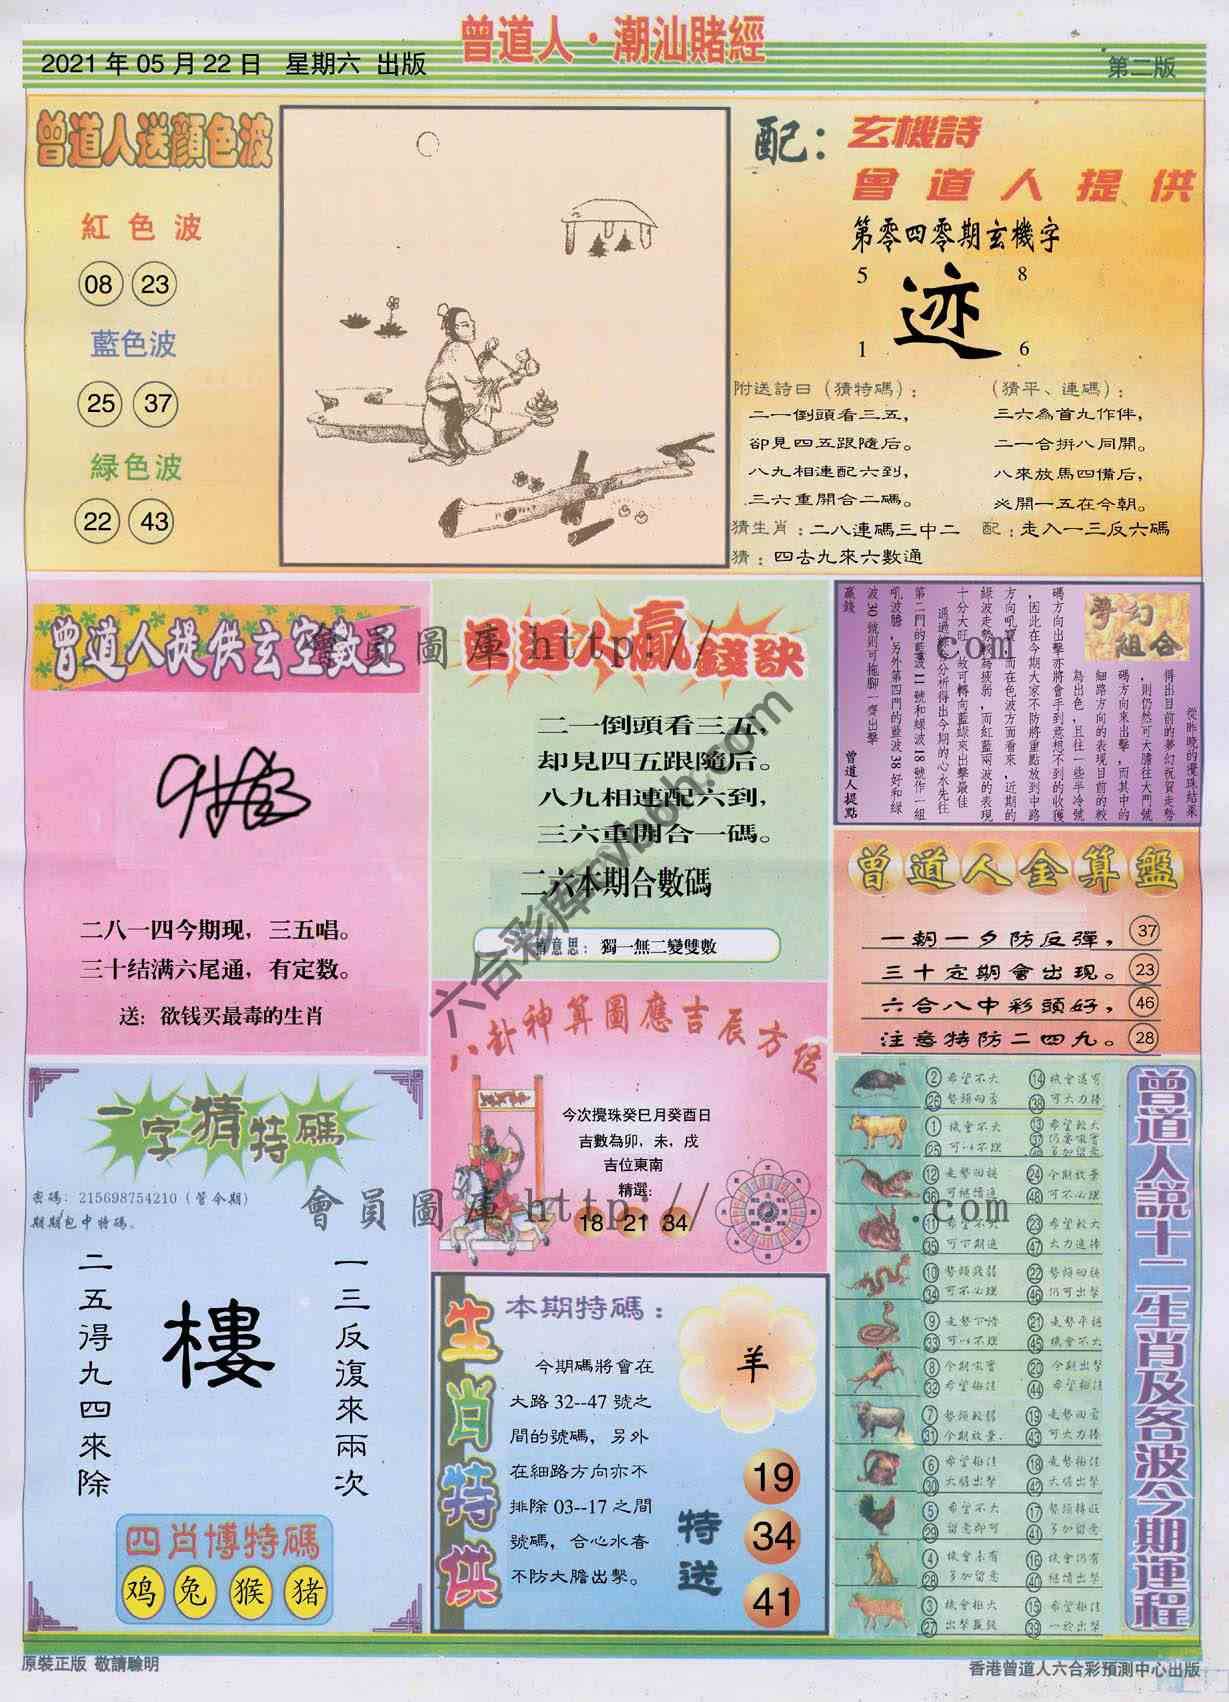 曾道人·潮汕賭經
2021 年 05 月 22 日 星期六 出版
第二版
曾道人送顔色波
紅色波
08 23
藍色波
25 37
緑色波
22 43
配：玄機詩
曾道人提供
第零四零期玄機字
5 8
迹
1 6
附送詩曰（猜特碼）：
二一倒頭看三五，
卻見四五跟隨后。
八九相連配六到，
三六重開合二碼。
（猜平、連碼）：
三六為首九作伴，
二一合拼八同開。
八來放馬四備后，
必開一五在今朝。
猜生肖：二八連碼三中二 配：走入一三反六碼
猜：四去九來六數通
曾道人提供玄空數
二八一四今期现，三五唱。
三十结满六尾通，有定数。
送：欲钱买最毒的生肖
曾道人贏錢訣
二一倒頭看三五
却見四五跟隨后。
八九相連配六到，
三六重開合一碼。
二六本期合數碼
意思：獨一無二變雙數
夢幻組合
從昨晚的攪珠結果
得出目前的夢幻祝賀走勢
，則仍然可大膽往大門號
碼方向來出擊，而其中的
細路方向的表現目前的較
為出色，且往一些半冷號
碼方向出擊亦將會手到意想不到的收獲
，因此在今期大家不防將重點放到中路
方向吼寶，而在色波方面看來，近期的
綠波走勢較為疲弱，而紅藍兩波的表現
十分大旺，故可轉向藍綠來出擊最佳
第二門的藍波 11 號和綠波 18 號作一組
吼波膽，另外第四門的藍波 38 好和綠
波 30 號則可拖腳一齊出擊
贏錢
曾道人提點
曾道人金算盤
一朝一夕防反彈， 37
三十定期會出現。 23
六合八中彩頭好， 46
注意特防二四九。 28
八卦神算圖應吉辰方位
今次攪珠癸巳月癸酉日
吉數為卯，未，戌
吉位東南
精選:
18 21 34
一字猜特碼
密碼: 215698754210 (管今期)
期期包中特碼。
一三反復來兩次
樓
二五得九四來除
四肖博特碼
鸡 兔 猴 猪
生肖特供
本期特碼：
今期碼將會在
大路 32--47 號之
間的號碼，另外
在細路方向亦不
排除 03--17 之間
號碼，合心水者
不防大膽出擊。
羊
特送
19
34
41
曾道人説十二生肖及各波今期運程
② 希望不大 ⑭ 機會還可
㉖ 勢頭回否 ㊳ 可大力捧
① 機會不大 ⑬ 希望較大
㉕ 可以不理
⑫ 走勢回穩 ㉔ 今期放棄
㊱ 可繼續追 ㊽ 可不必理
㉓ 希望較大
㉟ 可下期追 ㊼ 大力追捧
⑩ 勢頭疲弱 ㉒ 勢頭回穩
㉞ 可不必理 ㊻ 仍可出擊
㉑ 走勢平穩
㉝ 可以不理 ㊺ 機會不大
⑧ 今期吼寶 ⑳ 今期出擊
㉜ 希望極佳 ㊹ 希望極佳
⑦ 勢頭較弱 ⑲ 走勢回否
㉛ 今期放棄 ㊸ 可大力捧
⑥ 希望極佳 ⑱ 走勢極佳
㉚ 大膽出擊 ㊷ 大膽出擊
⑤ 希望不大 ⑰ 勢頭轉旺
㉙ 留意即可 ㊶ 多加留意
④ 機會未有 ⑯ 機會仍有
㉘ 多加留意 ㊵ 繼續出擊
③ 機會極大 ⑮ 希望極佳
㉗ 出擊贏錢 ㊴ 一於出擊
會員圖庫 http:// com
會員圖庫 http:// .com
原裝正版 敬請驗明
香港曾道人六合彩預測中心出版